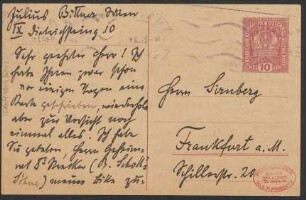 Julius Bittner Wien
IX Dietrichsteing 10
Sehr geehrter Herr! Ich
habe Ihnen zwar schon
vor einigen Tagen eine
Karte geschrieben, wiederhole
aber zur Vorsicht noch
einmal alles. Ich habe
Sie gebeten Herrn Geheimrat
Dr Strecker (B. Schott's
Söhne) meine
10
Herrn Sirnberg
Frankfurt a. M.
Schillerstr. 20